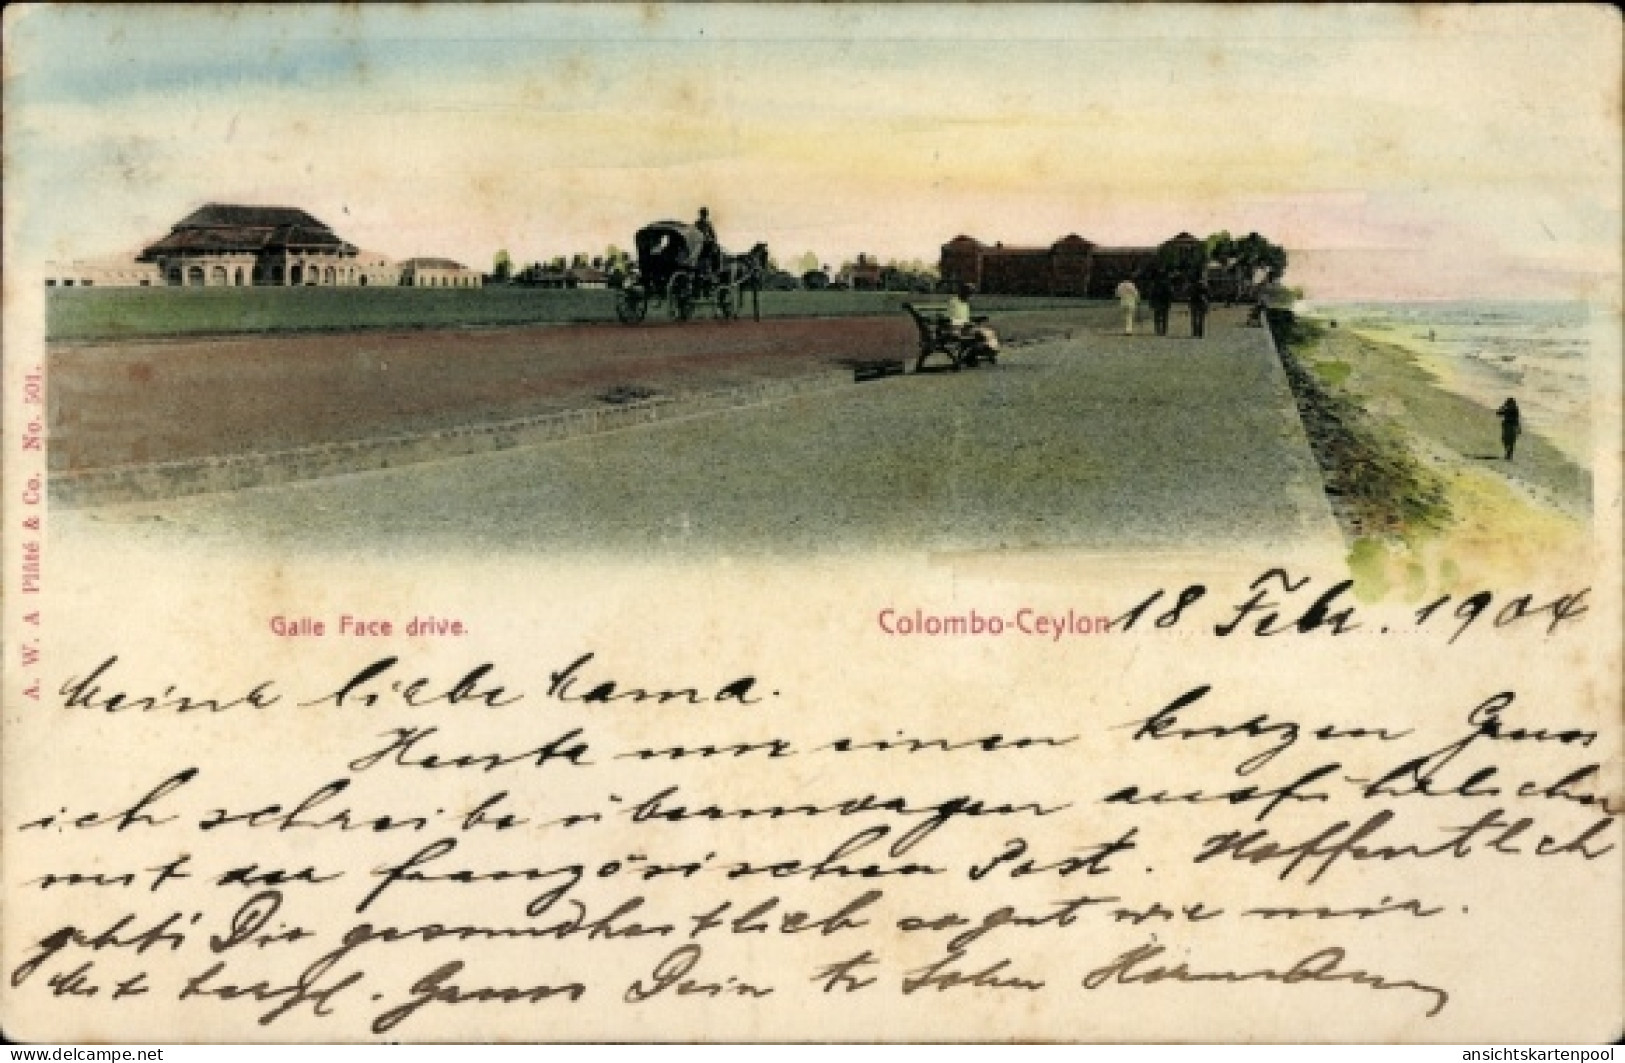 A. W. A Plâté & Co. No. 501.
Galle Face drive.
Colombo-Ceylon 18 Febr. 1904
Meine liebe Mama.
Heute nur einen kurzen Gruss
ich schreibe übermorgen ausführlicher
mit der französischen Post. Hoffentlich
geht's Dir gesundheitlich so gut wie mir.
Mit herzl. Gruss Dein tr Sohn Hermann
www.delcampe.net
ansichtskartenpool